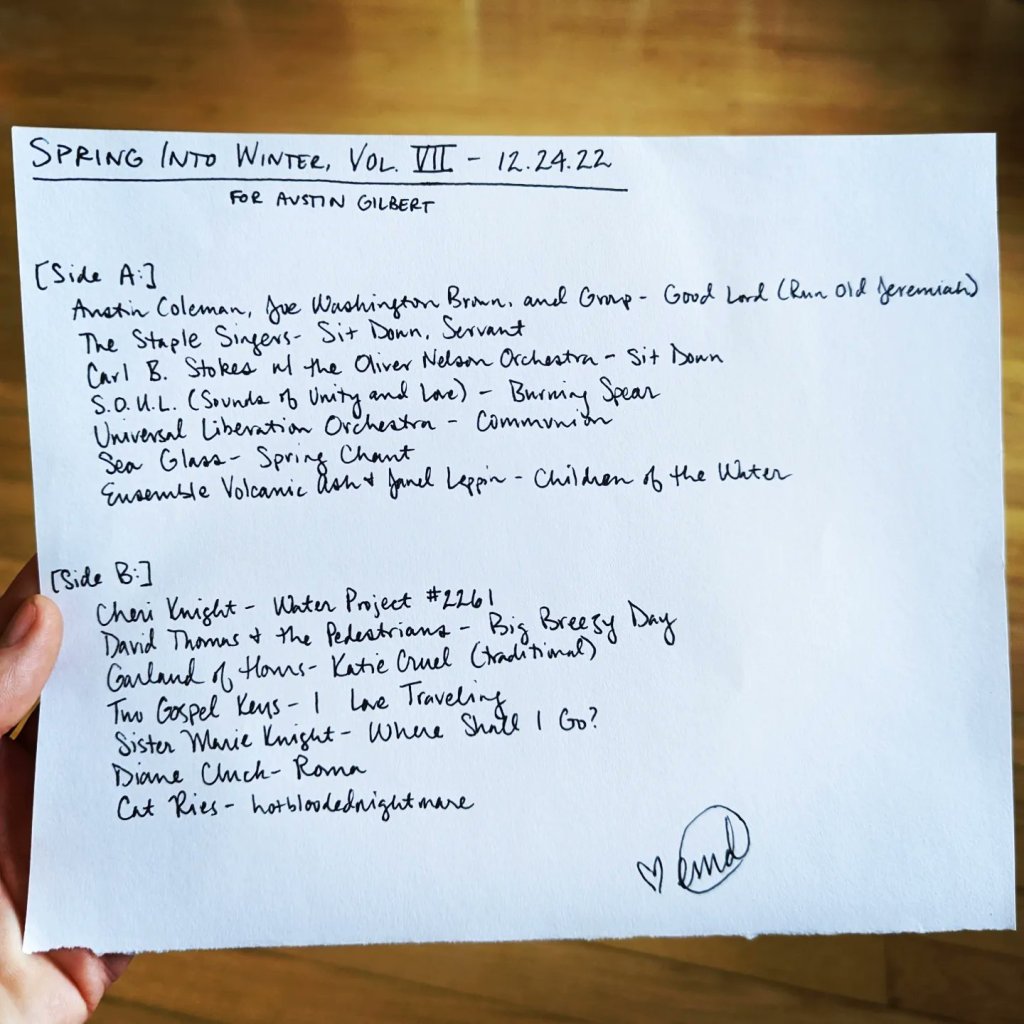 SPRING INTO WINTER, VOL. VII - 12.24.22
FOR AUSTIN GILBERT
[Side A:]
Austin Coleman, Joe Washington Brown, and Group - Good Lord (Run Old Jeremiah)
The Staple Singers - Sit Down, Servant
Carl B. Stokes w/ the Oliver Nelson Orchestra - Sit Down
S.O.U.L. (Sounds of Unity and Love) - Burning Spear
Universal Liberation Orchestra - Communion
Sea Glass - Spring Chant
Ensemble Volcanic Ash + Janel Leppin - Children of the Water
[Side B:]
Cheri Knight - Water Project #2261
David Thomas + the Pedestrians - Big Breezy Day
Garland of Hours - Katie Cruel (traditional)
Two Gospel Keys - I Love Traveling
Sister Marie Knight - Where Shall I Go?
Diane Cluck - Roma
Cat Ries - hotbloodednightmare
♡ emd